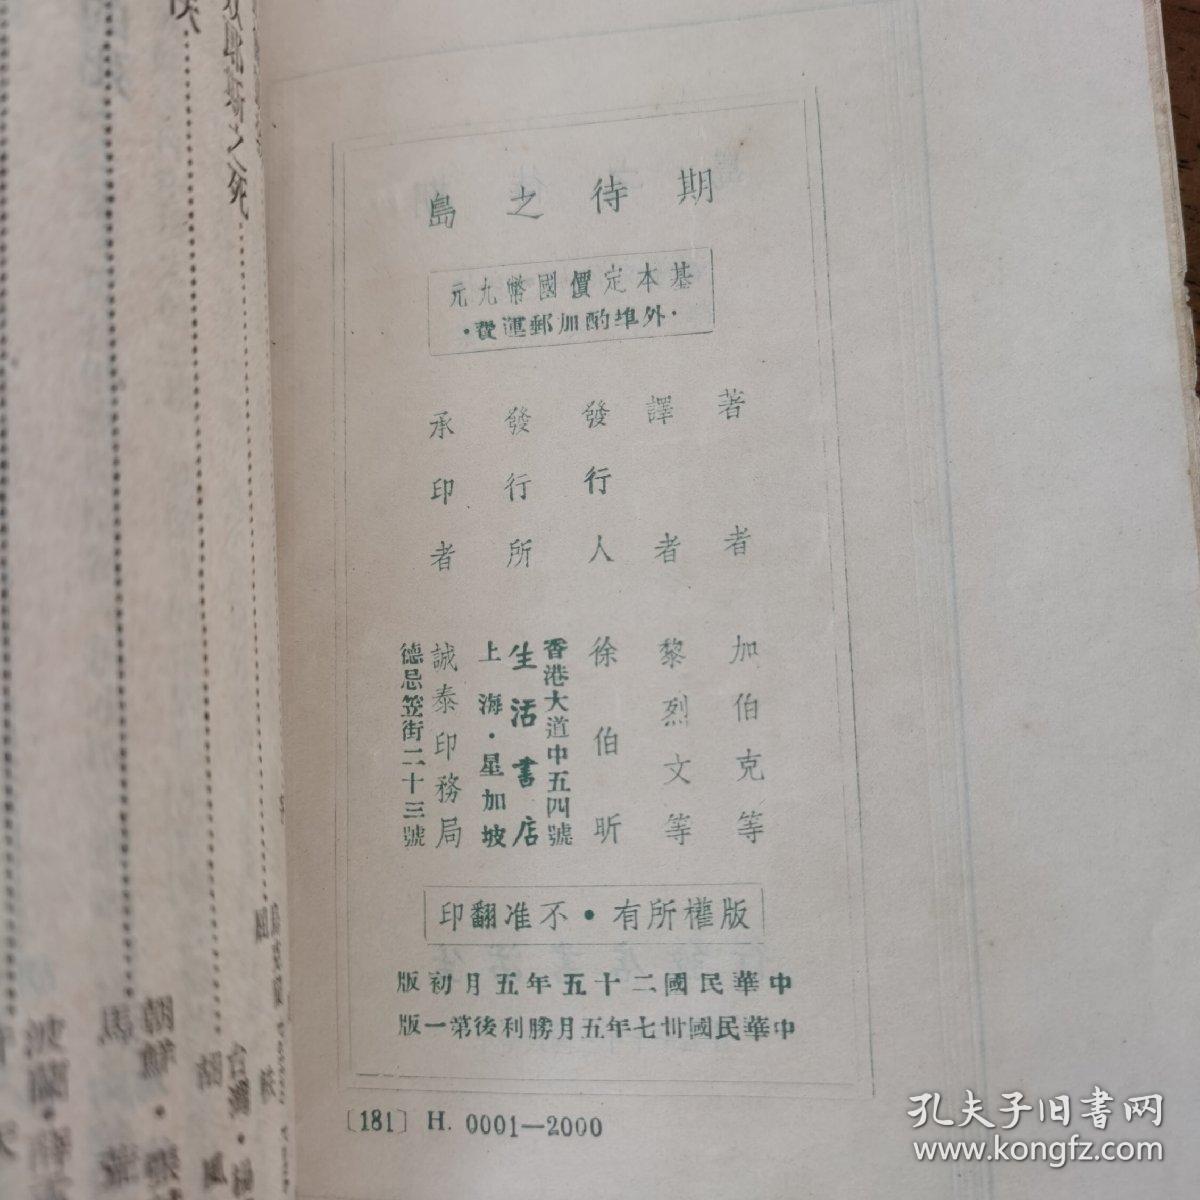 期待之島
基本定價國幣九元
·外埠酌加郵運費·
著者 加伯克等
譯者 黎烈文等
發行人 徐伯昕
發行所 香港大道中五四號
生活書店
上海·星加坡
承印者 誠泰印務局
德忌笠街二十三號
版權所有·不准翻印
中華民國二十五年五月初版
中華民國卅七年五月勝利後第一版
[181] H. 0001—2000
之死
台灣·
胡風
朝鮮·
波蘭·
孔夫子旧书网
www.kongfz.com